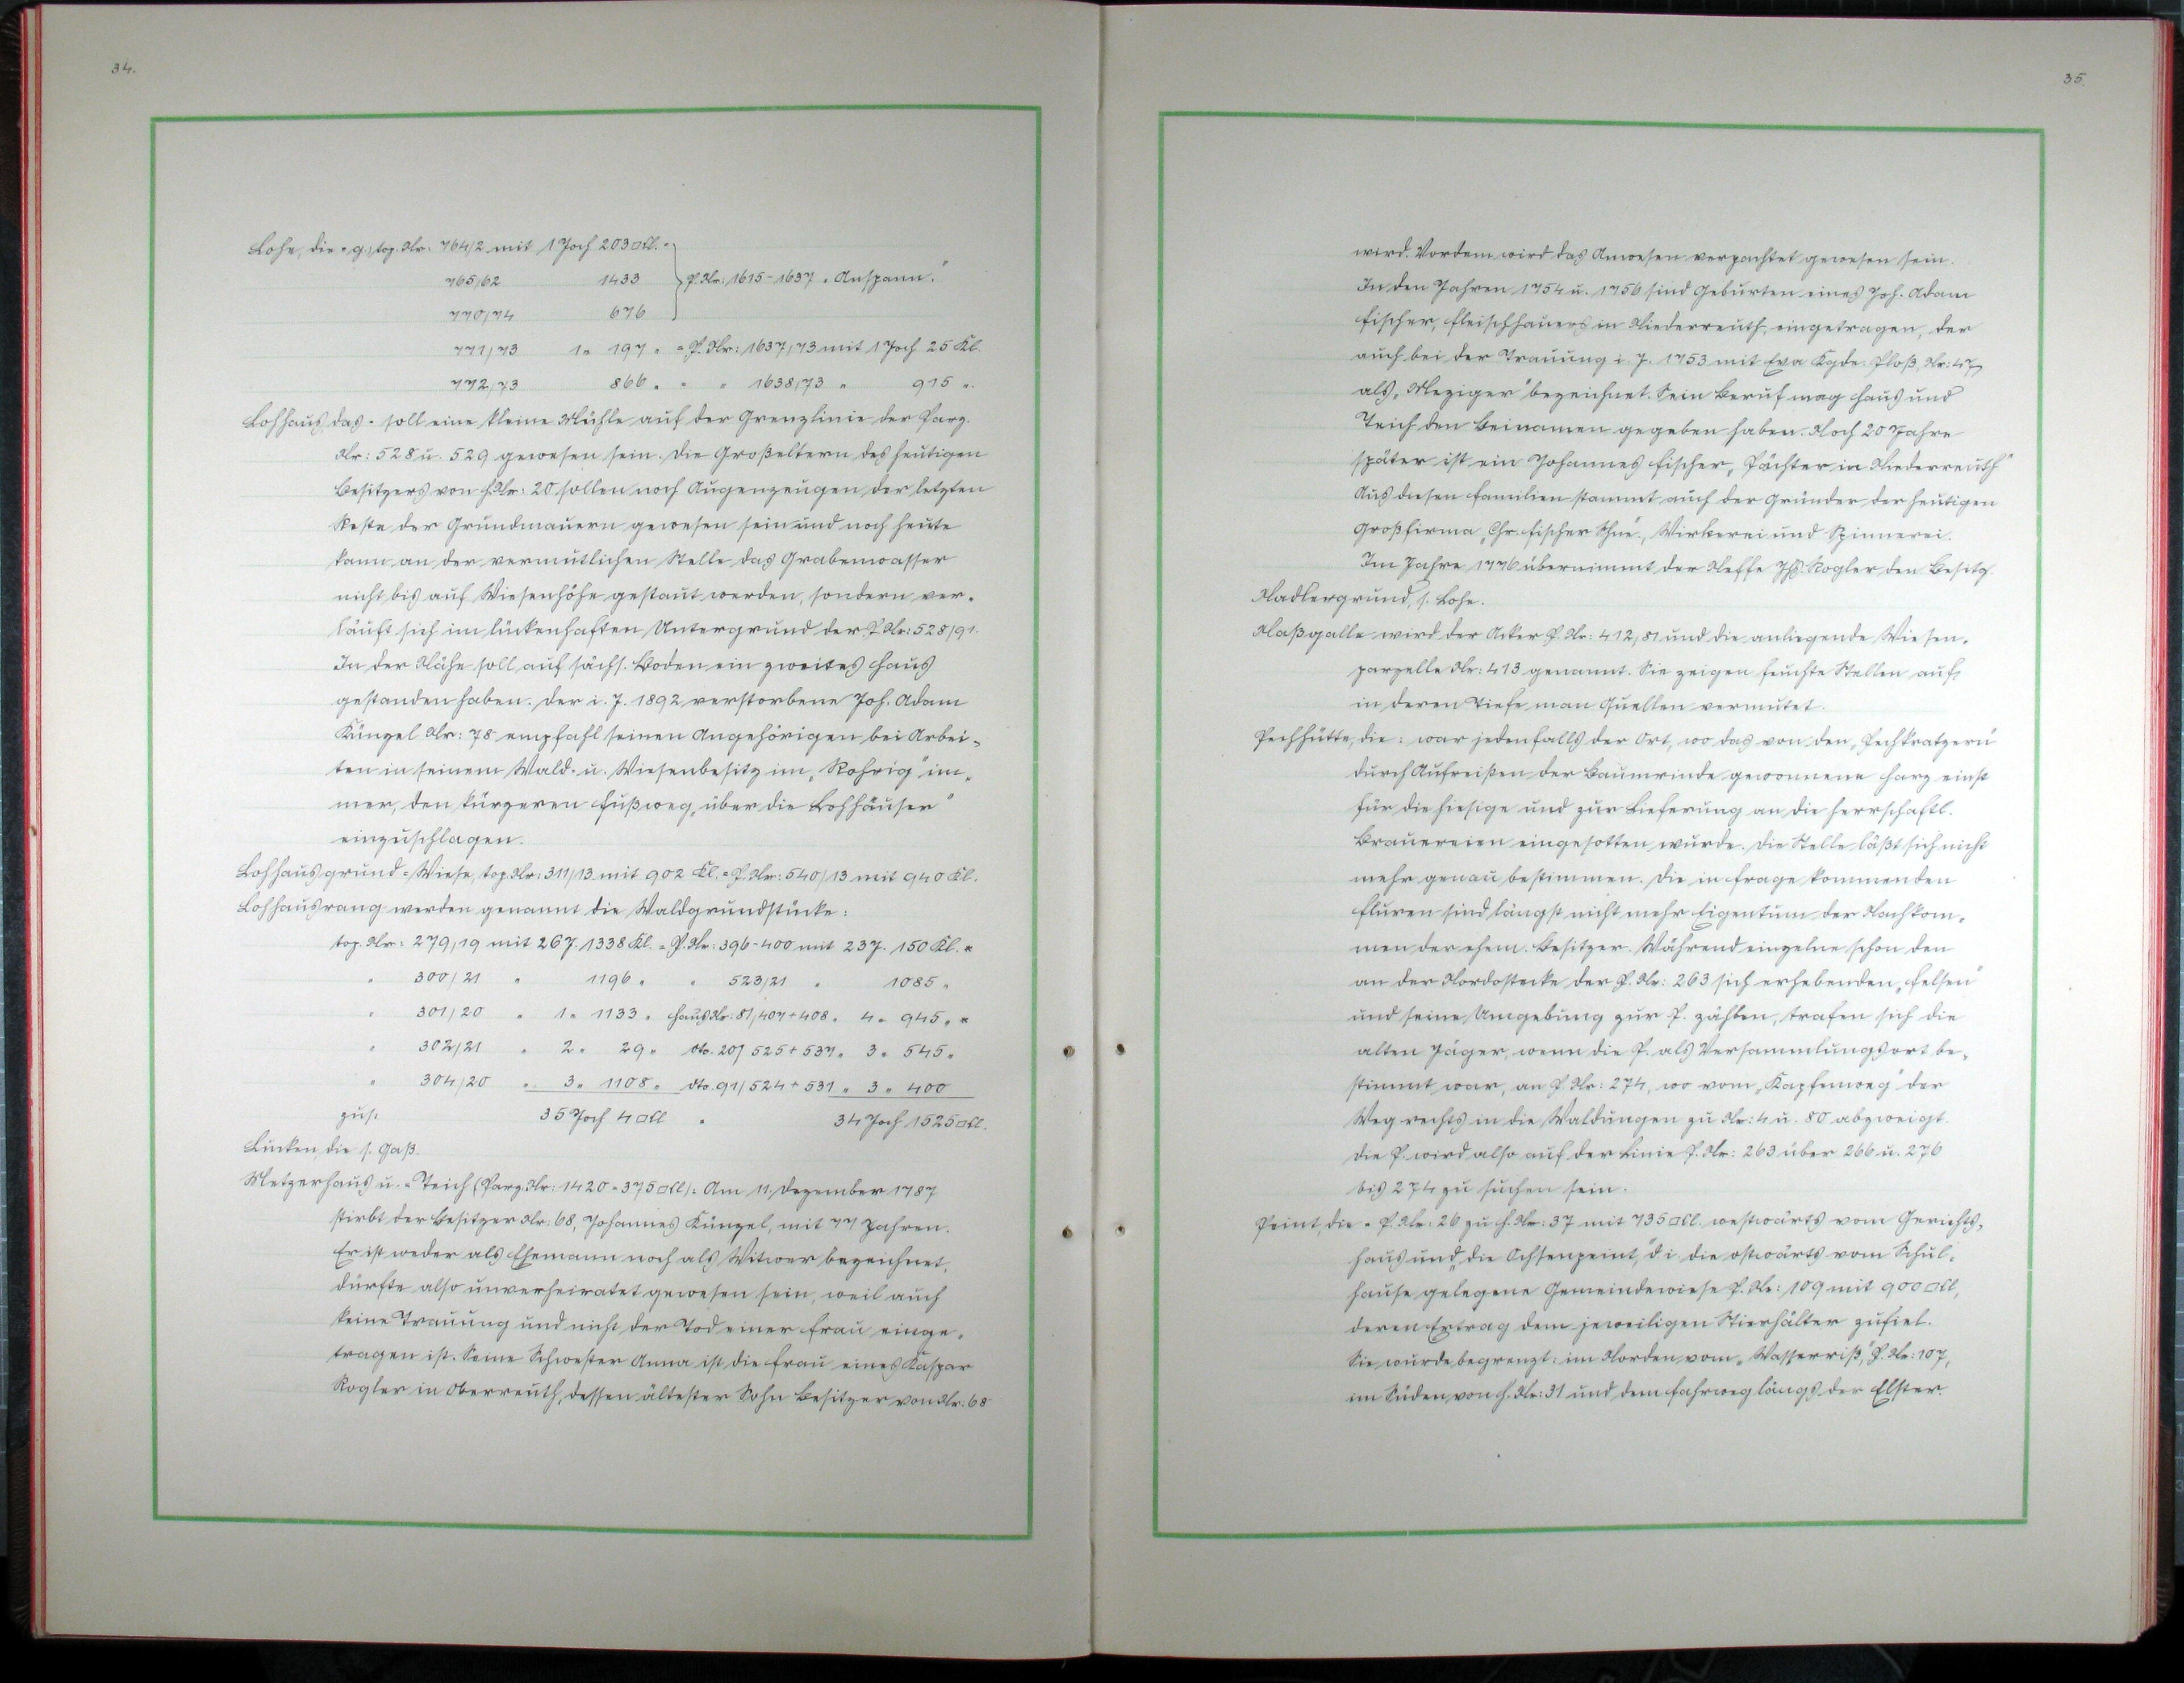 34.
Lohe, die - g; top. Nr: 764/2 mit 1 Joch 203 □Kl. =
765/62 1433 P. Nr: 1615-1637 „Anspann."
770/74 676
771/73 1 „ 197 „ = P. Nr: 1637/73 mit 1 Joch 25 Kl.
772/73 866 „ = „ 1638/73 „ 915 „.
Lohhaus, das - soll eine kleine Mühle auf der Grenzlinie der Parz.
Nr: 528 u. 529 gewesen sein. Die Großeltern des heutigen
Besitzers von H. Nr: 20 sollen noch Augenzeugen der letzten
Reste der Grundmauern gewesen sein und noch heute
kann an der vermutlichen Stelle das Grabenwasser
nicht bis auf Wiesenhöhe gestaut werden, sondern ver-
läuft sich im lückenhaften Untergrund der P. Nr: 528/91.
In der Nähe soll auf sächs. Boden ein zweites Haus
gestanden haben. Der i. J. 1892 verstorbene Joh. Adam
Künzel Nr: 78 empfahl seinen Angehörigen bei Arbei-
ten in seinem Wald- u. Wiesenbesitz im „Rohrig" im-
mer, den kürzeren Fußweg „über die Lohhäuser"
einzuschlagen.
Lohhausgrund = Wiese, top. Nr: 311/13 mit 902 Kl. = P. Nr: 540/13 mit 940 Kl.
Lohhausrang werden genannt die Waldgrundstücke:
top. Nr: 279/19 mit 26 J. 1338 Kl. = P. Nr: 396-400 mit 23 J. 150 Kl. *
„ 300/21 „ 1196 „ „ 523/21 „ 1085 „
„ 301/20 „ 1 „ 1133 „ Haus Nr: 81/407+408 „ 4 „ 945 „ *
„ 302/21 „ 2 „ 29 „ dto. 20/ 525+537 „ 3 „ 545 „
„ 304/20 „ 3 „ 1108 „ dto. 91/ 524+531 „ 3 „ 400
zus: 35 Joch 4 □Kl „ 34 Joch 1525 □Kl.
Lücken, die s. Gaß.
Metzgerhaus u. = Teich (Parz. Nr: 1420 = 375 □Kl): Am 11. Dezember 1787
stirbt der Besitzer Nr: 68, Johannes Künzel, mit 77 Jahren.
Er ist weder als Ehemann noch als Witwer bezeichnet,
dürfte also unverheiratet gewesen sein, weil auch
keine Trauung und nicht der Tod einer Frau einge-
tragen ist. Seine Schwester Anna ist die Frau eines Kaspar
Kogler in Oberreuth, dessen ältester Sohn Besitzer von Nr: 68
35.
wird. Vordem wird das Anwesen verpachtet gewesen sein.
In den Jahren 1754 u. 1756 sind Geburten eines Joh. Adam
Fischer, Fleischhauers in Niederreuth, eingetragen, der
auch bei der Trauung i. J. 1753 mit Eva Kgde. Ploß, Nr: 47,
als „Mezziger" bezeichnet. Sein Beruf mag Haus und
Teich den Beinamen gegeben haben. Noch 20 Jahre
später ist ein Johannes Fischer „Pächter in Niederreuth"
Aus diesen Familien stammt auch der Gründer der heutigen
Großfirma „Chr. Fischer Söhne", Wirkerei und Spinnerei.
Im Jahre 1776 übernimmt der Neffe Jhs. Kogler den Besitz.
Nadlergrund, s. Lohe.
Naßgalle wird der Acker P. Nr: 412/81 und die anliegende Wiesen-
parzelle Nr: 413 genannt. Sie zeigen feuchte Stellen auf,
in deren Tiefe man Quellen vermutet.
Pechhütte, die: war jedenfalls der Ort, wo das von den „Pechkratzern"
durch Aufreißen der Baumrinde gewonnene Harz einst
für die hiesige und zur Lieferung an die herrschaftl.
Brauereien eingesotten wurde. Die Stelle läßt sich nicht
mehr genau bestimmen. Die in Frage kommenden
Fluren sind längst nicht mehr Eigentum der Nachkom-
men der ehem. Besitzer. Während einzelne schon den
an der Nordostecke der P. Nr: 263 sich erhebenden „Felsen"
und seine Umgebung zur P. zählen, trafen sich die
alten Jäger, wenn die P. als Versammlungsort be-
stimmt war, an P. Nr: 274, wo vom „Kapfenweg" der
Weg rechts in die Waldungen zu Nr: 4 u. 80 abzweigt.
Die P. wird also auf der Linie P. Nr: 263 über 266 u. 276
bis 274 zu suchen sein.
Peint, die - P. Nr: 26 zu H. Nr: 37 mit 735 □Kl. westwärts vom Gerichts-
haus und „die Ochsenpeint," d. i. die ostwärts vom Schul-
hause gelegene Gemeindewiese P. Nr: 109 mit 900 □Kl,
deren Ertrag dem jeweiligen Stierhälter zufiel.
Sie wurde begrenzt: im Norden vom „Wasserriß," P. Nr: 107,
im Süden von H. Nr: 31 und dem Fahrweg längs der Elster.